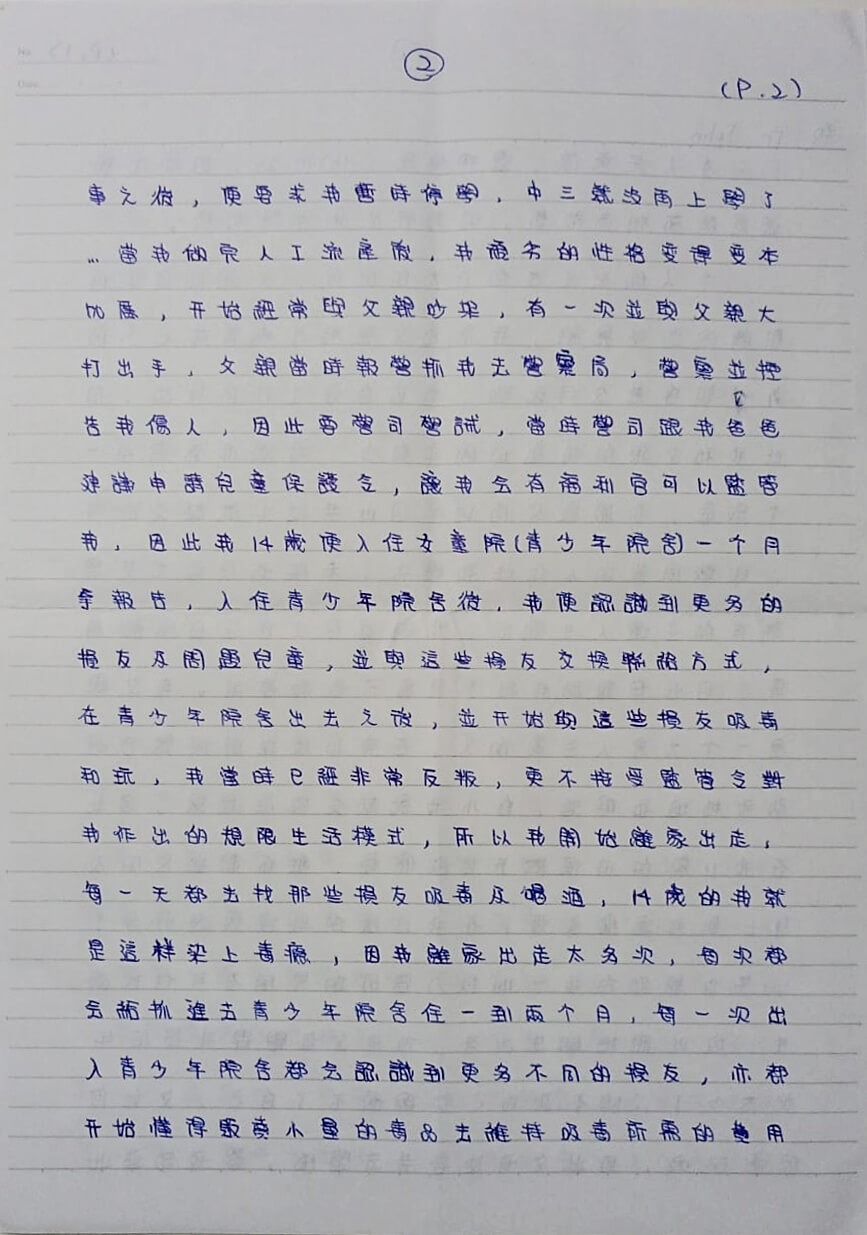 ②
(P.2)
事之後，便要求我暫時停學，中三就沒再上學了
…當我做完人工流產後，我愛夯的性格變得變本
加厲，開始經常與父親吵架，有一次並與父親大
打出手，父親當時報警抓我去警察局，警察並控
告我傷人，因此要警司警誡，當時警司跟我爸爸
建議申請兒童保護令，讓我会有福利官可以監管
我，因此我14歲便入住女童院(青少年院舍)一个月
拿報告，入住青少年院舍後，我便認識到更多的
損友及問題兒童，並與這些損友交換聯絡方式，
在青少年院舍出去之後，並开始與這些損友吸毒
和玩，我當時已經非常反叛，更不接受監管令對
我作出的規限生活模式，所以我開始離家出走，
每一天都去找那些損友吸毒及喝酒，14歲的我就
是這樣染上毒癮，因我離家出走太多次，每次都
会給抓進去青少年院舍住一到兩个月，每一次出
入青少年院舍都会認識到更多不同的損友，亦都
开始懂得販賣小量的毒品去維持吸毒所需的費用